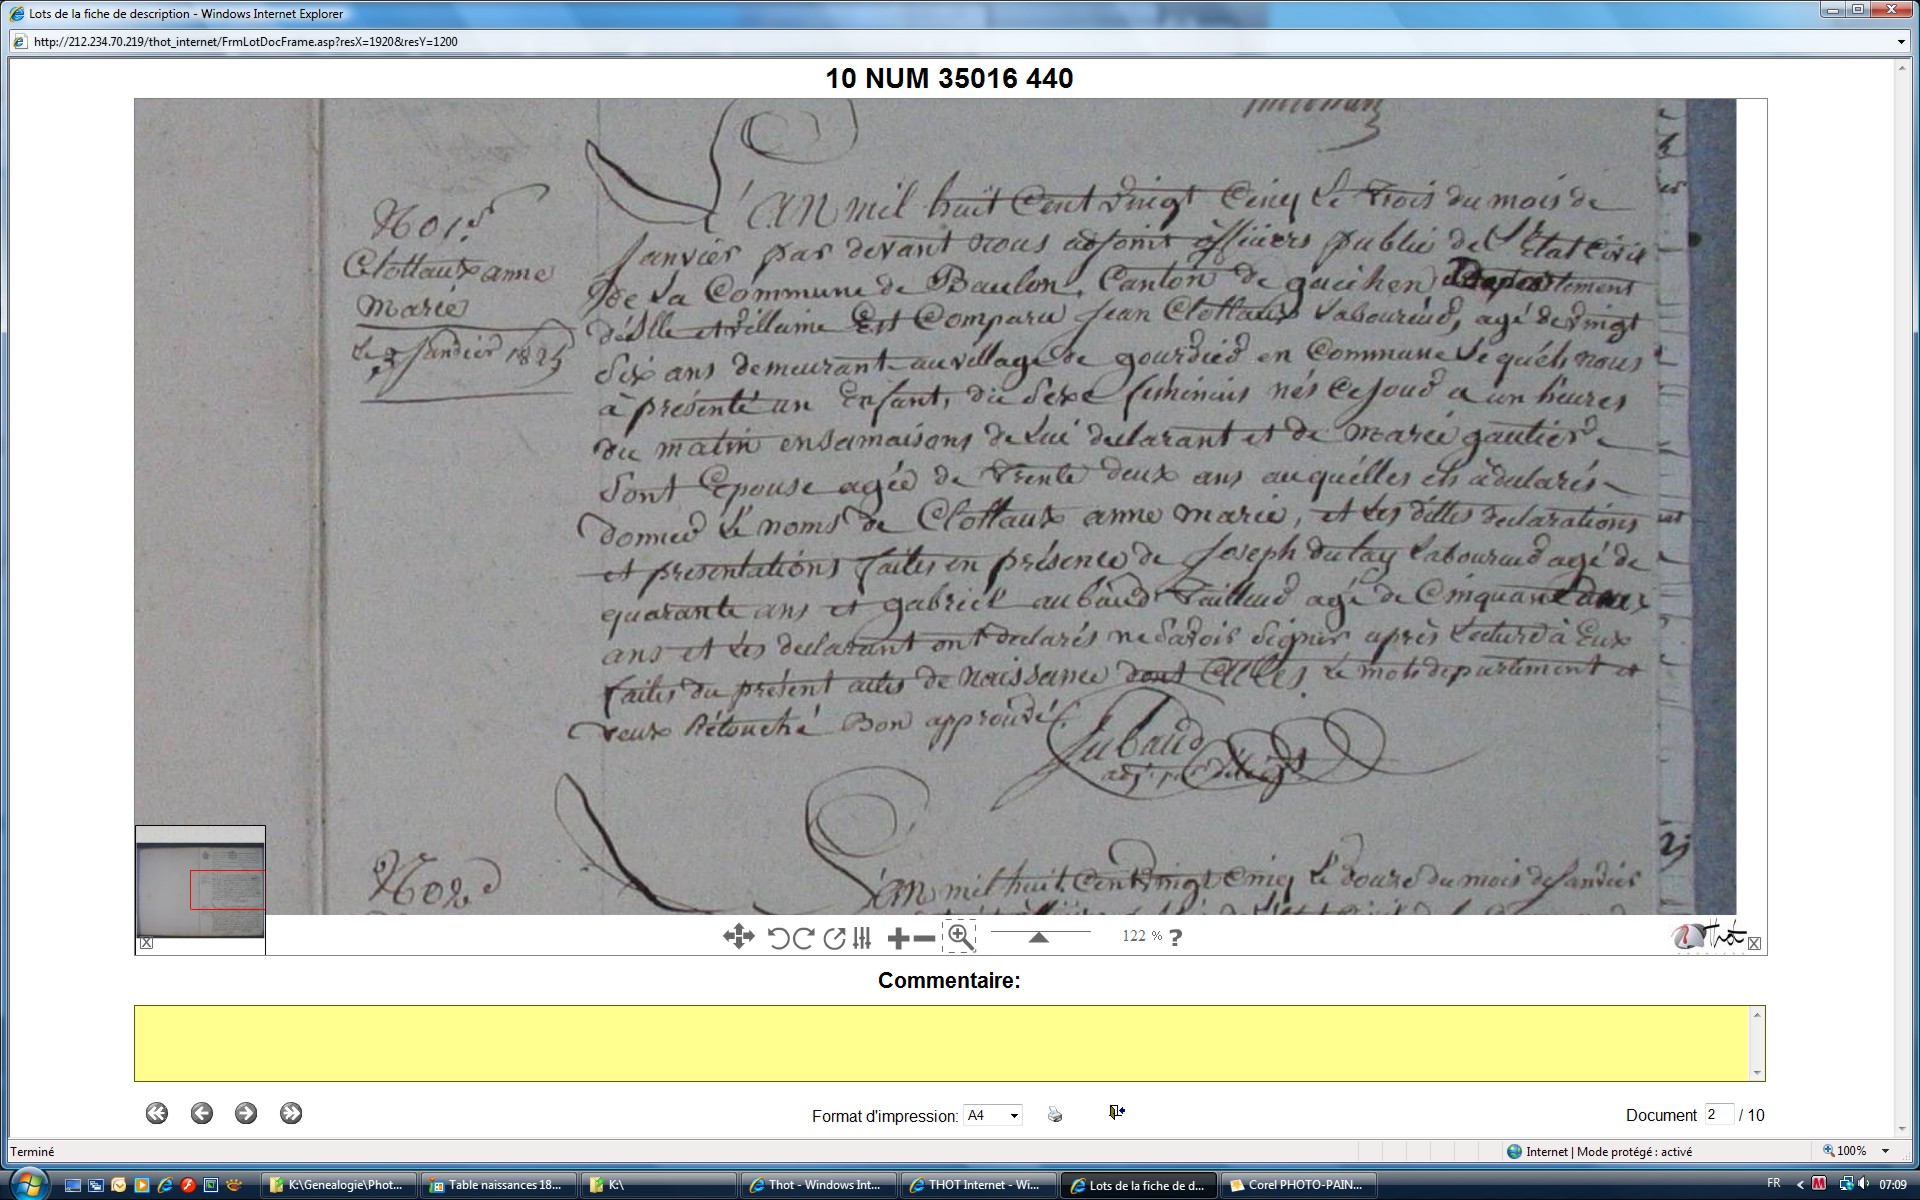 Lots de la fiche de description - Windows Internet Explorer
http://212.234.70.219/thot_internet/FrmLotDocFrame.asp?resX=1920&resY=1200
10 NUM 35016 440
No 1er
Clottaux anne
Marie
le 3 Janvier 1825
L'AN mil huit Cent vingt Cinq Le trois du mois de
Janvier par devant nous adjoint officiers public de L'Etat Civil
de La Commune de Baulon, Canton de guichen Departement
d'ille et villaine Est Comparu Jean Clottaux Laboureud, agé de vingt
Six ans demeurant au village de gourdied en Commune Le quels nous
à présenté un Enfant, du Sexe feminins nés Ce Joud a un heures
du matin en sa maisons de Lui declarant et de Marie gautier
Sont Epouse agée de trente deux ans au quélles ils à dularés
donned Le noms de Clottaux anne marie, et Les dittes declarations
et présentations faites en présence de Joseph dulay Laboureud agé de
quarante ans et gabriel aubaud tailleud agé de Cinquante deux
ans et Les declarant ont declarés ne Savoir Signer après Lecture à Eux
faites du présent actes de Naissance dont Actes, Le mots departement et
deux Rétouché Bon approuvé
Aubaud
adj. par délég.
No 2d
L'an mil huit Cent vingt Cinq Le douze du mois de Janvier
122 % ?
Thot
Commentaire:
Format d'impression: A4
Document 2 / 10
Terminé
Internet | Mode protégé : activé
100%
K:\Genealogie\Phot...
Table naissances 18...
K:\
Thot - Windows Int...
THOT Internet - Wi...
Lots de la fiche de d...
Corel PHOTO-PAIN...
FR
07:09